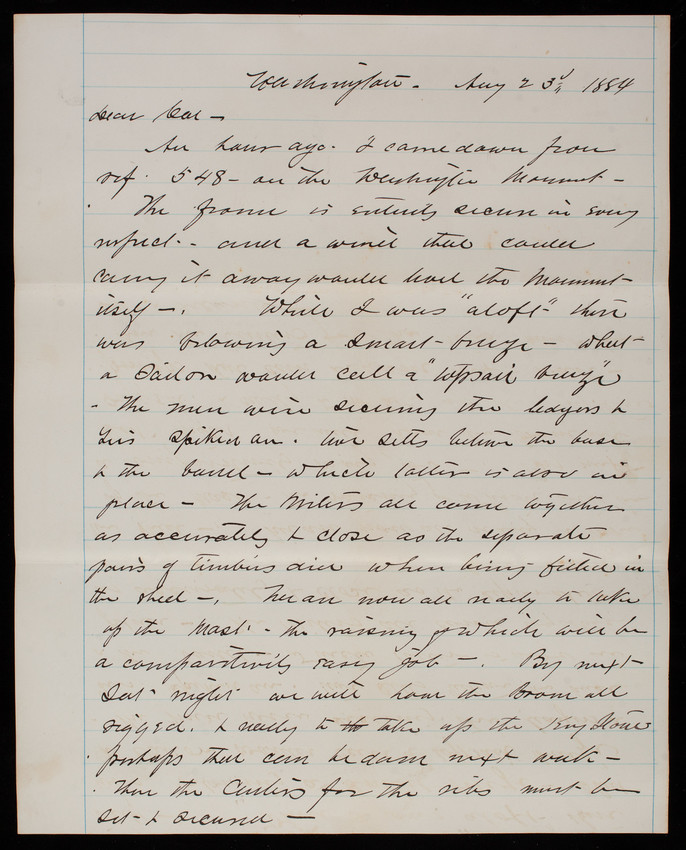 Washington - Aug 23d 1884
Dear Col -
An hour ago. I came down from
ref. 548 - on the Washington Monument -
The frame is entirely secure in every
respect - and a wind that could
carry it away would level the Monument
itself -. While I was "aloft" there
was blowing a smart breeze - what
a Sailor would call a "topsail breeze"
- The men were securing the ledgers &
ties spiked on. two setts between the base
& the barrel - which latter is also in
place - The Miters all come together
as accurately & close as the separate
pairs of timbers did when being fitted in
the shed -. We are now all ready to take
up the Mast - the raising of which will be
a comparitively easy job -. By next
Sat night we will have the boom all
rigged. & ready to take up the Key Stone
perhaps that can be done next week -
Then the Centers for the ribs must be
set & secured -